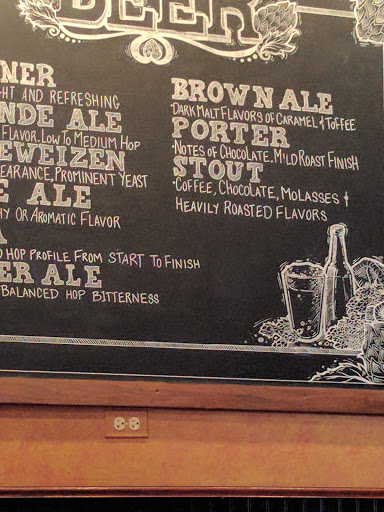 BEER
NER
HT AND REFRESHING
NDE ALE
FLAVOR. LOW TO MEDIUM HOP
EWEIZEN
EARANCE, PROMINENT YEAST
E ALE
HY OR AROMATIC FLAVOR
A
D HOP PROFILE FROM START TO FINISH
ER ALE
BALANCED HOP BITTERNESS
BROWN ALE
-DARK MALT FLAVORS OF CARAMEL & TOFFEE
PORTER
-NOTES OF CHOCOLATE, MILD ROAST FINISH
STOUT
-COFFEE, CHOCOLATE, MOLASSES &
HEAVILY ROASTED FLAVORS